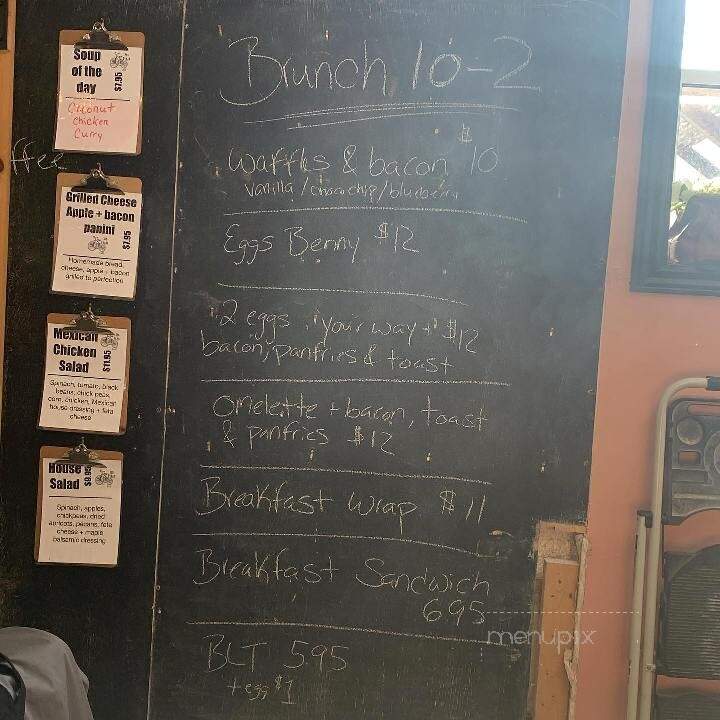 Soup
of the
day
$7.95
Coconut
Chicken
Curry
ffee
Grilled Cheese
Apple + bacon
panini
$7.95
Homemade bread,
cheese, apple + bacon
grilled to perfection
Mexican
Chicken
Salad
$11.95
Spinach, tomato, black
beans, chick peas,
corn, chicken, Mexican
house dressing + feta
cheese
House
Salad
$9.95
Spinach, apples,
chickpeas, dried
apricots, pecans, feta
cheese + maple
balsamic dressing
Brunch 10-2
Waffles & bacon $10
Vanilla / chocochip / blueberry
Eggs Benny $12
2 eggs, your way + $12
bacon, panfries & toast
Omelette + bacon, toast
& panfries $12
Breakfast Wrap $11
Breakfast Sandwich
695
BLT 595
+ egg $1
menupix